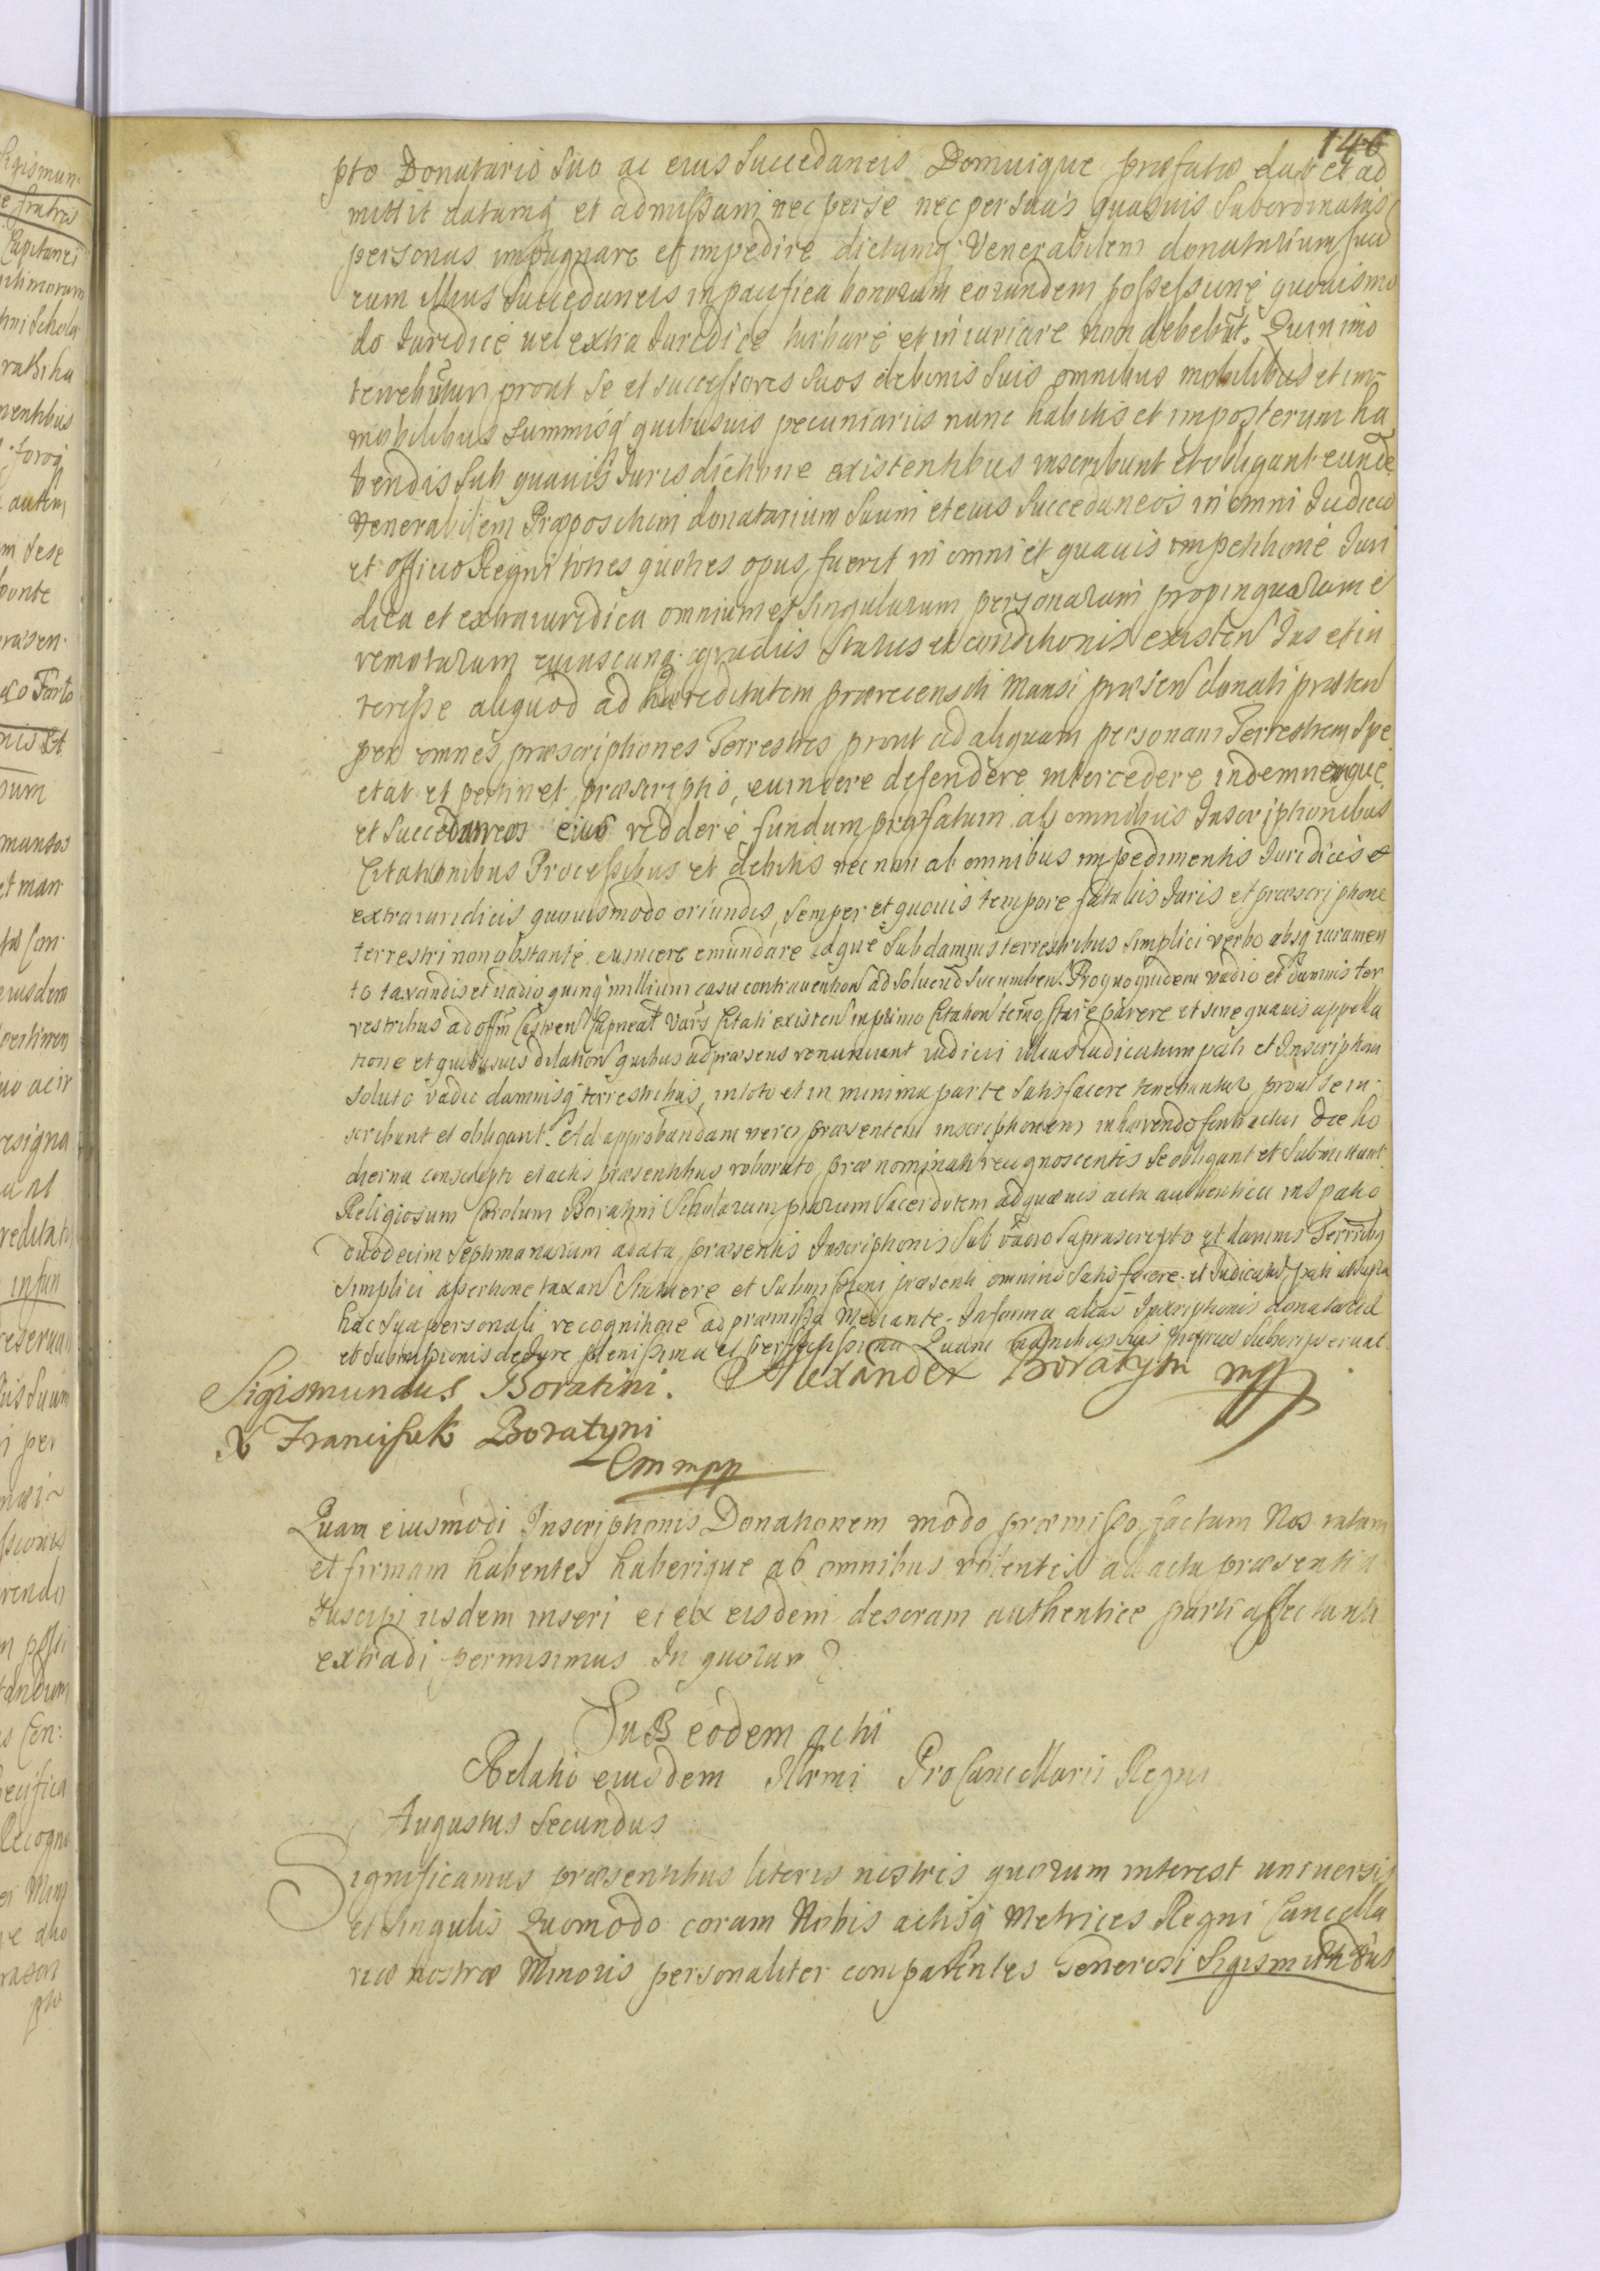 146
pto Donatario Suo ac eius Succedaneis Domuique præfatæ dat et ad
mittit datamq et admissam nec per se nec per suas quasuis Subordinatas
personas impugnare et impedire dictumq Venerabilem donatarium suu
rum illius Succedaneis in pacifica bonorum eorundem possessione quouismo
do Juridice vel extra Juridice turbare et iniuriare non debebut. Quin imo
tenebutur prout se et successores Suos de bonis Suis omnibus mobilibus et im-
mobilibus Summisq quibusuis pecuniariis nunc habitis et imposterum ha
bendis Sub quauis Jurisdictione existentibus inscribunt et obligant eunde
Venerabilem Præpositum donatarium Suum et eius Succedaneos in omni Judicio
et officio Regni toties quoties opus fuerit in omni et quauis impetitione Juri
dica et extraiuridica omnium et singularum personarum propinquarum e
remotarum cuiuscunq gradus Status et conditionis existen Jus et in
teresse aliquod ad hæreditatem prærecensiti Mansi præsen donati præten
per omnes præscriptiones Terrestres prout ad aliquam personam Terrestrem Spe
ctat et pertinet præscriptio, euincere defendere intercedere indemnemque
et Succedaneos eius reddere fundum præfatum ab omnibus Inscriptionibus
Citationibus Processibus et debitis nec non ab omnibus impedimentis Juridicis et
extraiuridicis quouismodo oriundis, Semper et quouis tempore fatalis Juris et præscriptione
terrestri non obstante euincere emundare idque Sub damnis terrestribus Simplici verbo absq iuramen
to taxandis et vadio quinq millium casu contrauention ad Soluend Succumben. Pro quo quidem vadio et damnis ter
restribus ad offm Castren Capneal Vars Citati existen in primo Citation termo Stare parere et sine quauis appella
tione et quibusuis dilation quibus ad præsens renunciant iudicii illius Judicatum pati et Inscription
Soluto vadio damnisq terrestribus, in toto et in minima parte Satisfacere tenebuntur prout se in-
scribunt et obligant. Ad approbandam vero præsentem inscriptionem inhærendo Contractui die ho
dierna conscripto et actis præsentibus roborato præ nominati recognoscentes Se obligant et Submittunt
Religiosum Carolum Boratini Scholarum piarum Sacerdotem ad quæuis acta authentica in spatio
duodecim Septimanarum a data præsentis Inscriptionis Sub vadio Suprascripto et damnis Terrribus
Simplici assertione taxan Statuere et Submissioni præsenti omnino Satisfacere et Judicatum pati ut supra
hac Sua personali recognitione ad præmissa Mediante. In forma alias Inscriptionis donatoriæ
et Submissionis de Jure plenissima et perfectissima Quam manibus Suis propriis Subscripserunt.
Sigismundus Boratini. Alexander Boratyni mpp
X Franciszek Boratyni
Cm mpp
Quam eiusmodi Inscriptionis Donationem modo præmisso factam Nos ratam
et firmam habentes haberique ab omnibus volentes ad acta præsentia
suscipi iisdem inseri et ex eisdem descram authentice parti affectanti
extradi permisimus In quorum
Sub eodem actu
Relatio eiusdem Illrmi ProCancellarii Regni
Augustus Secundus
Significamus præsentibus literis nostris quorum interest uniuersis
et Singulis Quomodo coram Nobis actisq Metrices Regni Cancella
riæ nostræ Minoris personaliter comparentes Generosi Sigismundus